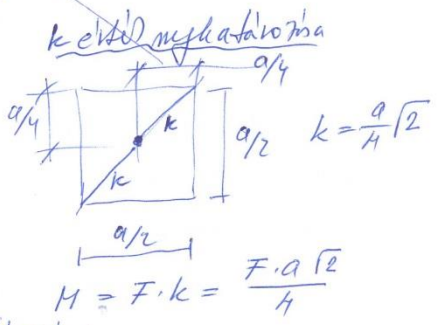 k értél meghatározása
a/4
a/4
k
k
a/2
k = a/4 √2
a/2
M = F·k = F·a√2/4